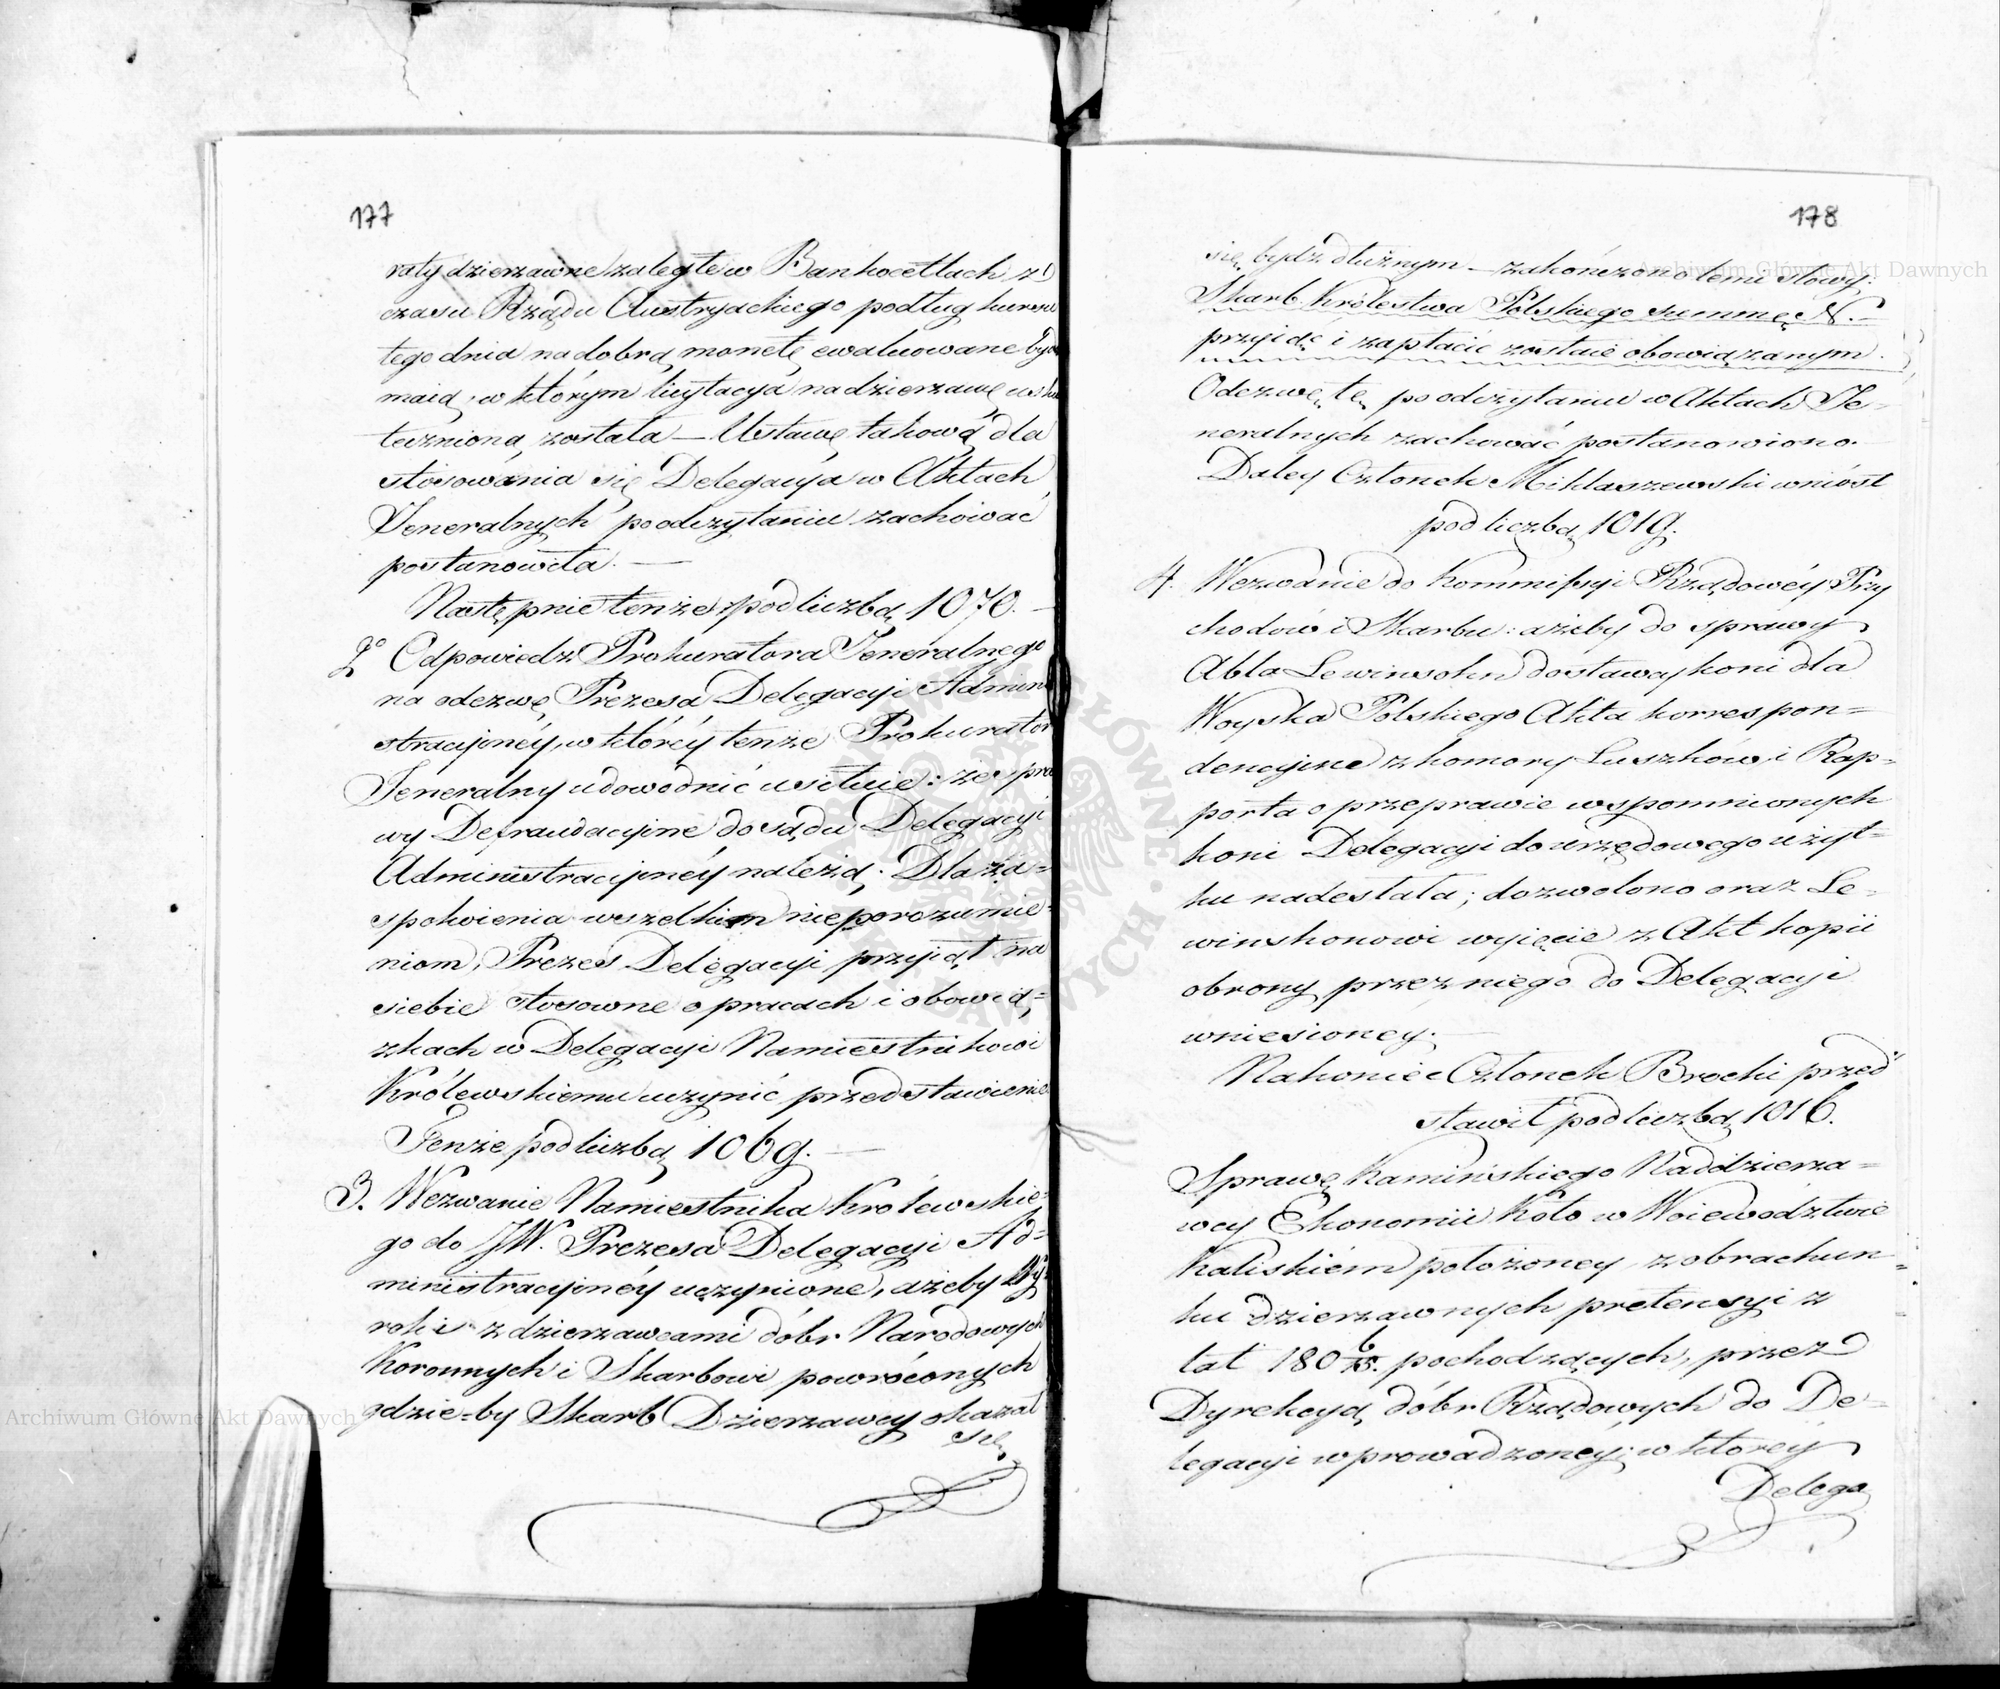 177
raty dzierzawne zaległe w Bankocetlach z
czasu Rządu Austryackiego podług kursu
tego dnia na dobrą monetę ewaluowane bydź
maią, w którym licytacya na dzierzawę usku
teczniona została — Ustawę takową dla
stosowania się Delegacya w Aktach
Jeneralnych po odczytaniu zachować
postanowiła. —
Następnie tenże pod liczbą 1070. —
2° Odpowiedz Prokuratora Jeneralnego
na odezwę Prezesa Delegacyi Admini
stracyjnéy, w któréy tenże Prokurator
Jeneralny udowodnić usiłuie: że spra
wy Defraudacyjne do sądu Delegacyi
Administracyjnéy należą. Dla za=
spokoienia wszelkim nieporozumie=
niom, Prezes Delegacyi przyiął na
siebie stosowne o pracach i obowią=
zkach w Delegacyi Namiestnikowi
Królewskiemu uczynić przedstawienie
Tenże pod liczbą 1069. —
3. Wezwanie Namiestnika Królewskie=
go do JW. Prezesa Delegacyi Ad=
ministracyjnéy uczynione, ażeby Wy=
roki z dzierzawcami dóbr Narodowych
Koronnych i Skarbowi powróconych
gdzie=by Skarb Dzierzawcy okazał
się
178
się bydź dłużnym — zakończono temi słowy:
Skarb Królestwa Polskiego summę N. —
przyiąć i zapłacić zostaie obowiązanym.
Odezwę tę po odczytaniu w Aktach Je=
neralnych zachować postanowiono.
Daley Członek Miklaszewski wniósł
pod liczbą 1019.
4. Wezwanie do Kommissyi Rządowéy Przy
chodow i Skarbu: ażeby do sprawy
Abla Lewinsohn dostawcy koni dla
Woyska Polskiego Akta korrespon=
dencyjne z komory Łuszków i Rap=
porta o przeprawie wspomnionych
koni Delegacyi do urzędowego użyt=
ku nadesłała; dozwolono oraz Le=
winskonowi wyięcie z Akt kopii
obrony przez niego do Delegacyi
wniesioney. —
Nakoniec Członek Brocki przed
stawił pod liczbą 1016.
Sprawę Kamińskiego Naddzierza=
wcy Ekonomii Koło w Woiewodztwie
Kaliskiém położoney, z obrachun=
ku dzierzawnych pretensyi z
lat 180 6/15. pochodzących, przez
Dyrekcyą dóbr Rządowych do De=
legacyi wprowadzonéy; w którey
Delega
Archiwum Główne Akt Dawnych
Archiwum Główne Akt Dawnych
ARCHIWUM GŁÓWNE AKT DAWNYCH